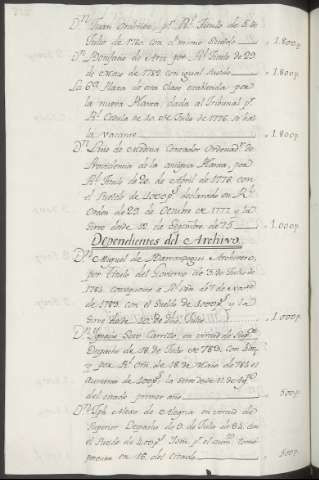 Dn. Juan Ordoñez, pr. Rl. Titulo de 5 de
Julio de 1780 con el mismo Sueldo 1.800p
Dn. Bonifacio de por Rl. Titulo de 29
de Mayo de 1782 con igual Sueldo 1.800p
La 6ª Plaza de esta Clase establecida por
la nueva Planta dada al Tribunal pr.
Rl. Cedula de 10 de Julio de 1776 se halla
la vacante
Dn. de Medina Contador Ordenador de
de la antigua Planta, por
Rl. Titulo de 20 de Abril de 1776 con
el Sueldo de 1000ps. declarado en Rl.
Orden de 23 de Octubre de 1777 y la
sirve desde 12 de Septiembre de 75 1.000p
Dependientes del Archivo
Dn. Miguel de Archivero,
por Titulo del Govierno de 3 de Julio de
1782 conseqüente a Rl. Orn. de 7 de
de 1783 con el Sueldo de 1000ps. y la
sirve desde de dho. Julio 1.000p
Dn. Ignacio Soto Carrillo, en virtud de Supor.
Despacho de 18 de Julio de 783, con
y por Rl. Orn. de 18 de Maio de 784 el
aumento de 100ps. la sirve desde 11 de Agto.
del citado primer año 500p
Dn. Jph. de Alegria en virtud de
Superior Despacho de 9 de Julio de 84 con
el Sueldo de 400ps. tomó
posesion en 16 del citado 500p